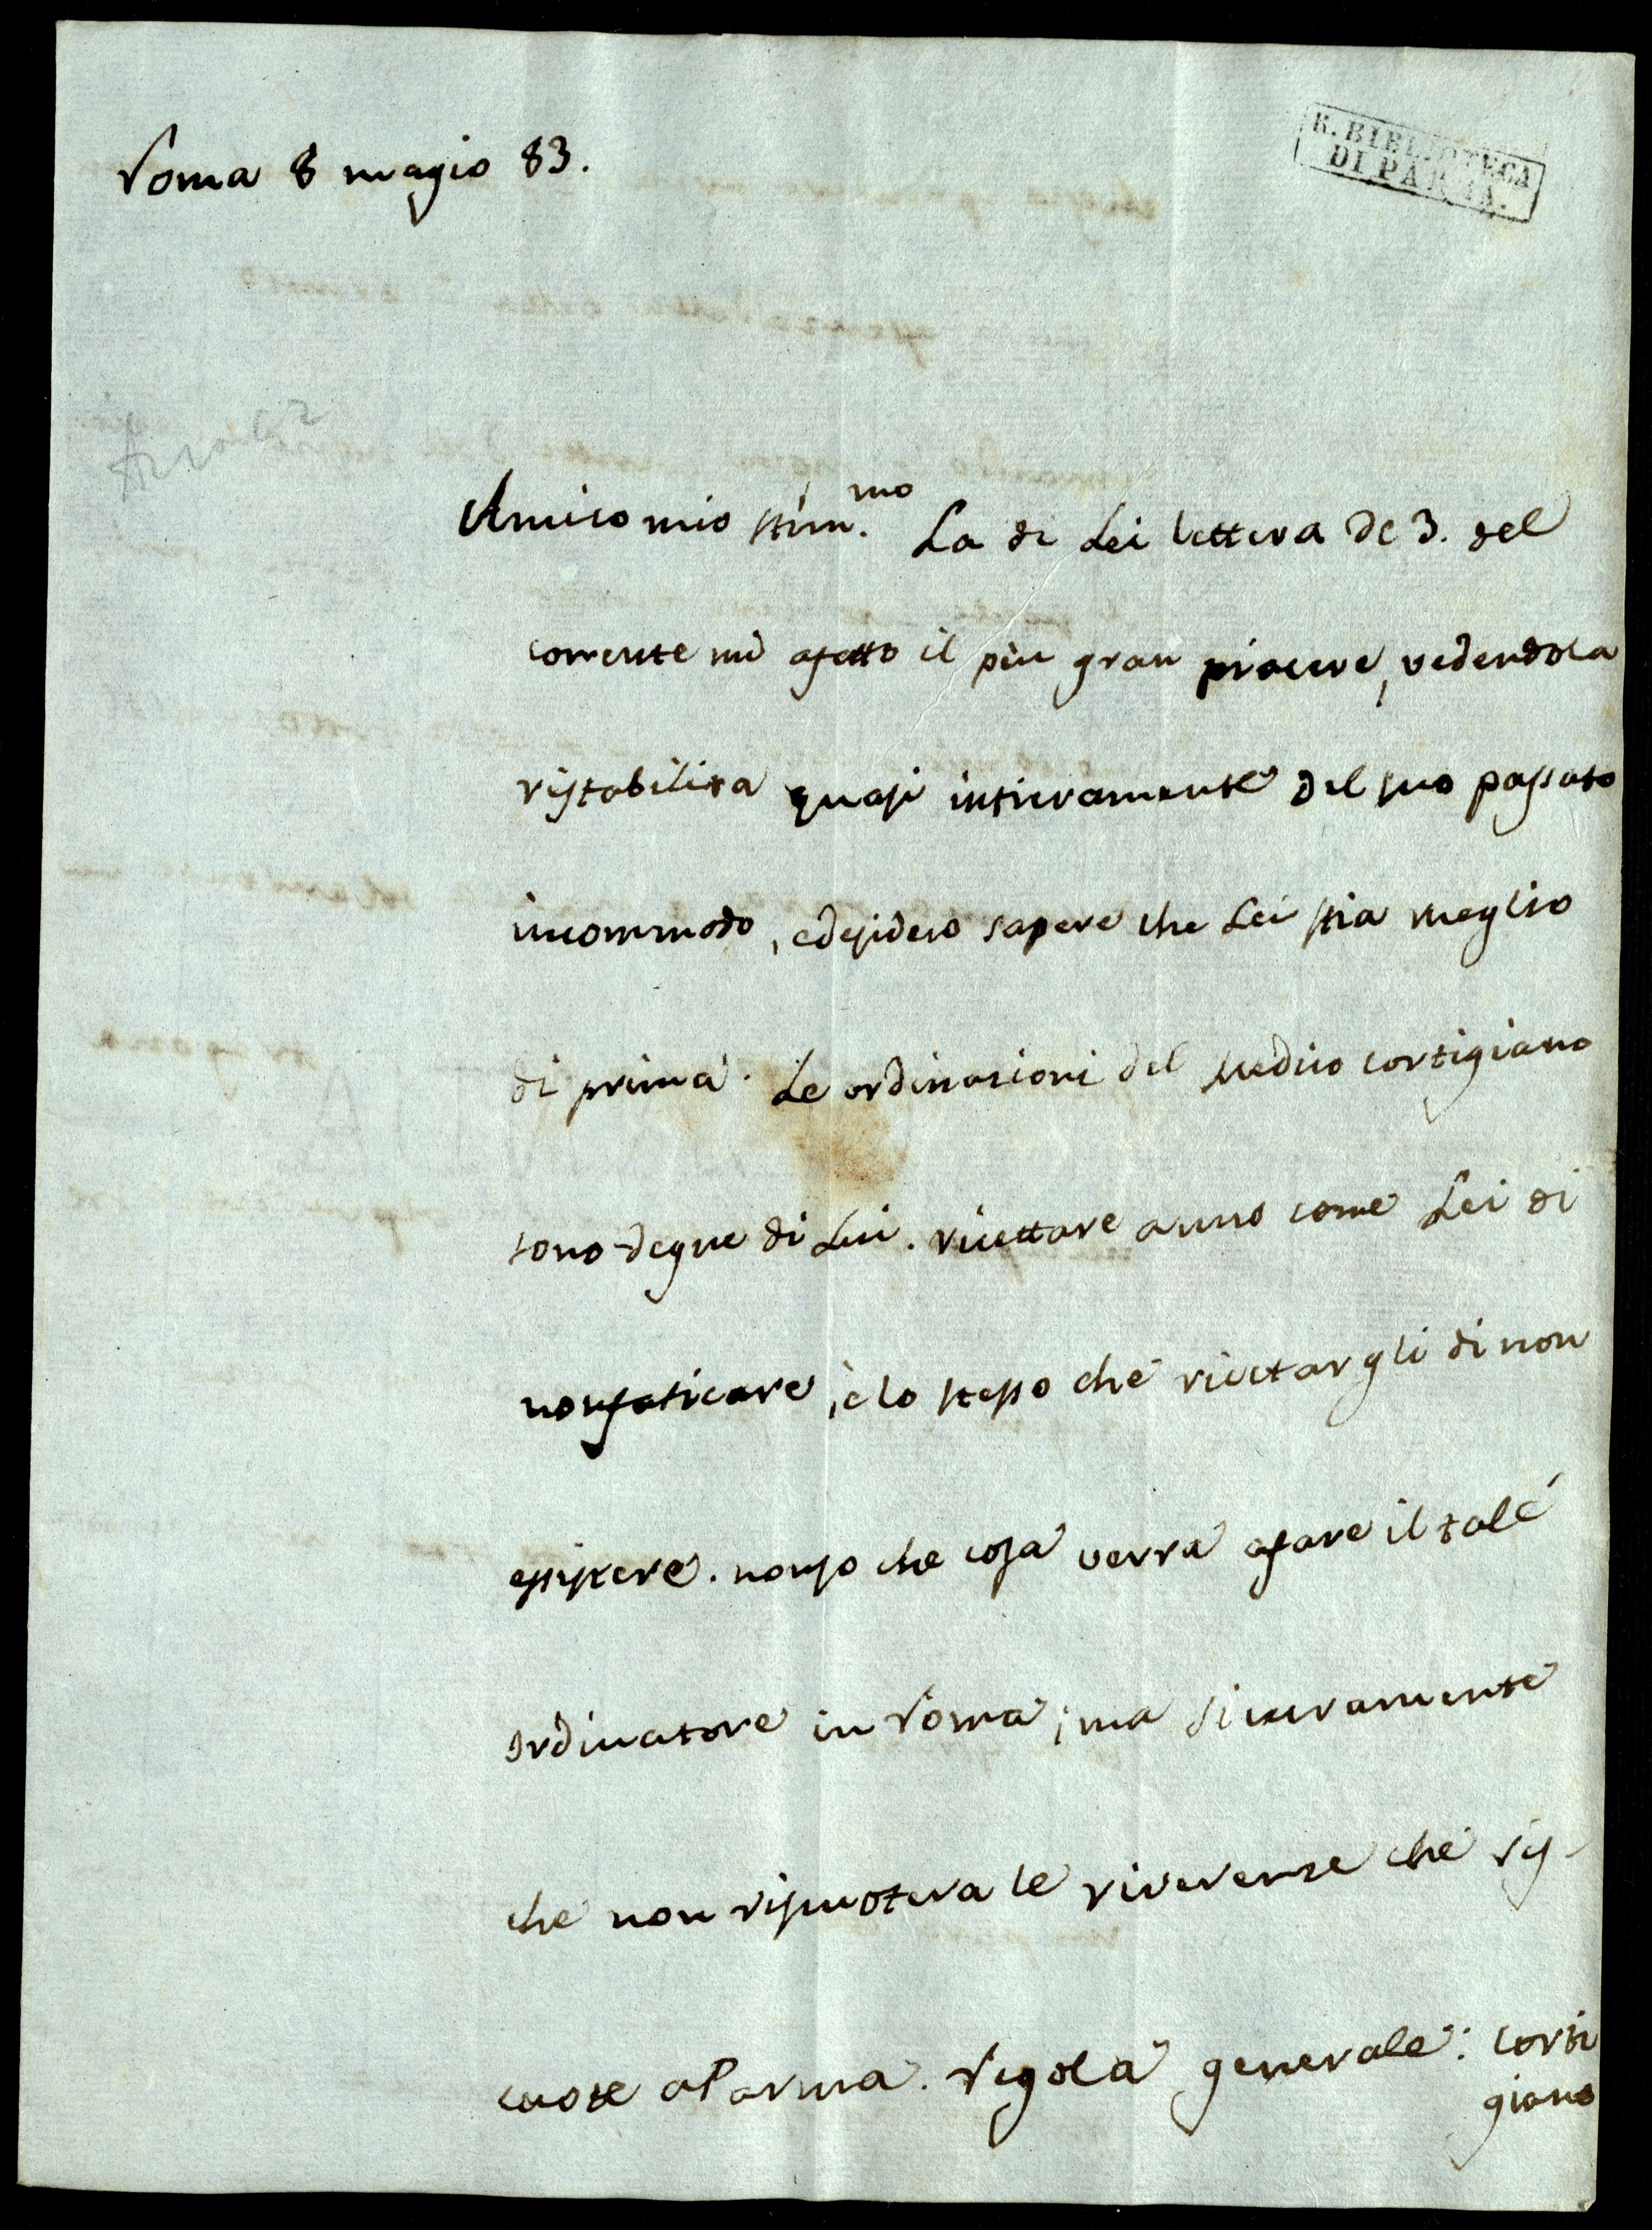 Roma 8 magio 83.
R. BIBLIOTECA
DI PARMA.
Azara
Amico mio stim.mo La di Lei lettera de 3. del
corrente mi afatto il piu gran piacere, vedendola
ristabilita quasi intieramente del suo passato
incommodo, edesidero sapere che Lei stia meglio
di prima. Le ordinazioni del Medico cortigiano
sono degne di Lui. ricettare a uno come Lei di
nonfaticare, è lo stesso che ricettargli di non
essistere. nonso che cosa verra afare il tale
ordinatore in Roma; ma sicuramente
che non riscuotera le riverenze che ris-
cuote aParma. Regola generale: corti
giano